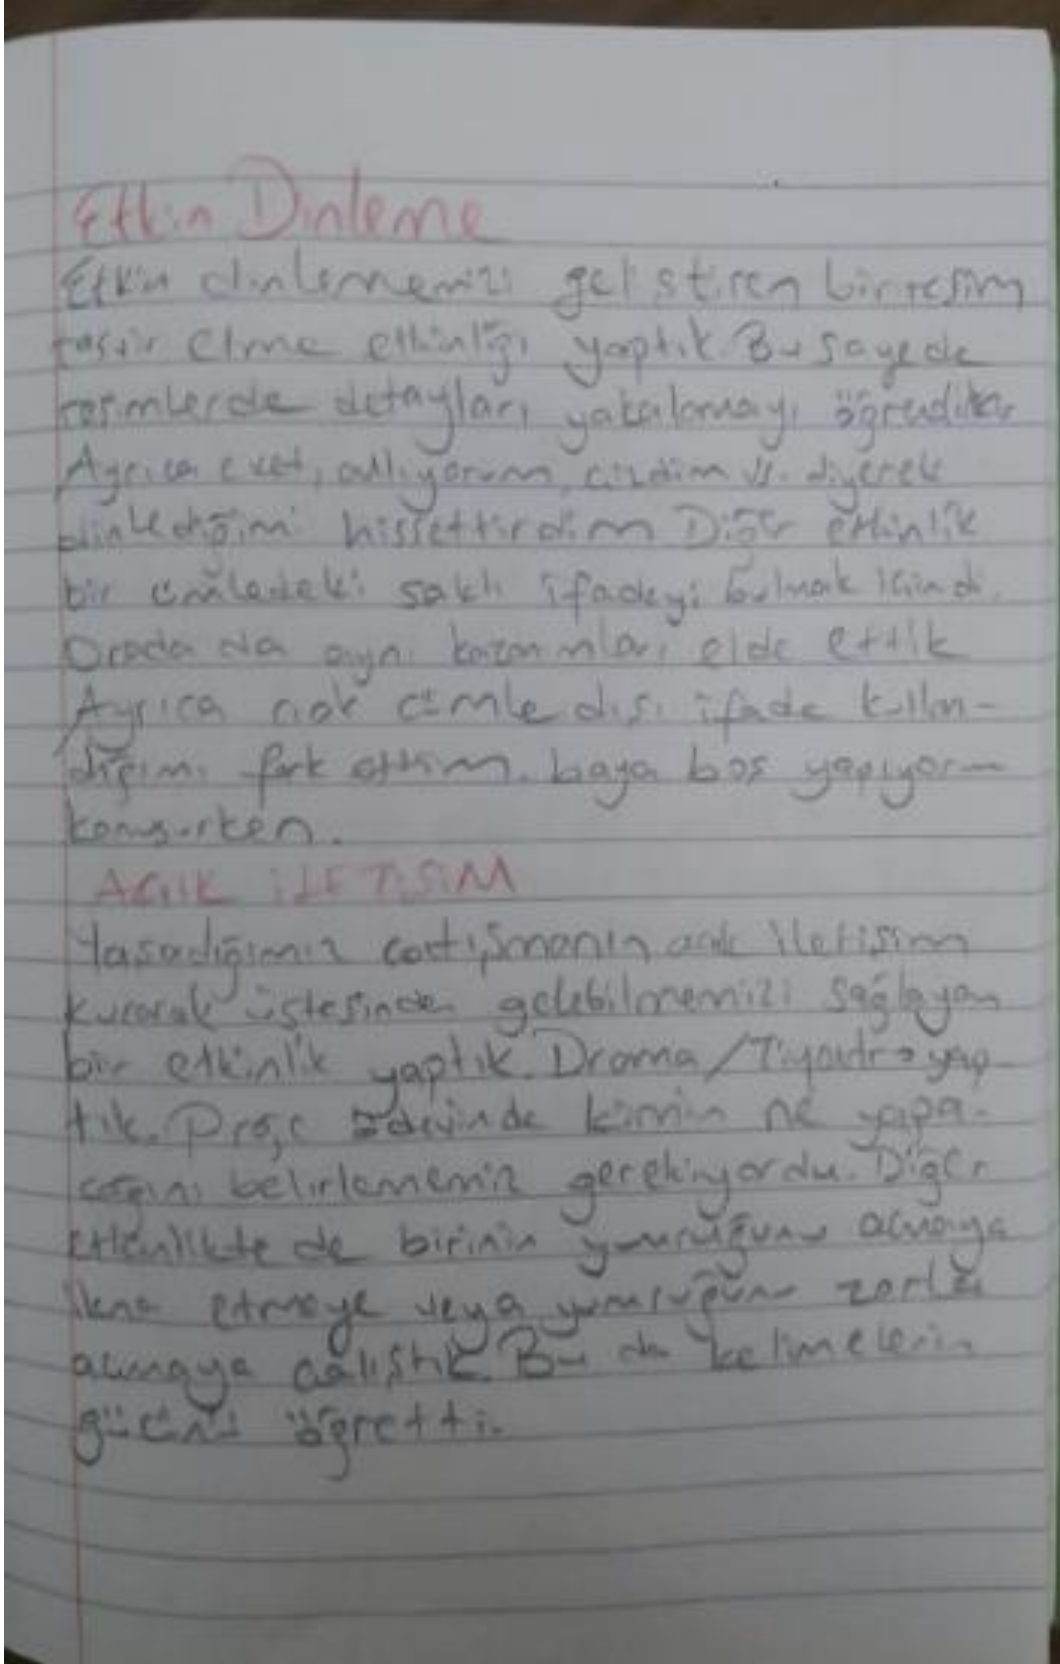 Etkin Dinleme
Etkin dinlememizi geliştiren bir resim
tasvir etme etkinliği yaptık. Bu sayede
resimlerde detayları yakalamayı öğrendik.
Ayrıca evet, anlıyorum, çizdim vs. diyerek
dinlediğimi hissettirdim Diğer etkinlik
bir cümledeki saklı ifadeyi bulmak içindi.
Orada da aynı kazanımları elde ettik
Ayrıca çok cümle dışı ifade kullan-
dığımı fark ettim. baya boş yapıyorum
konuşurken.
AÇIK İLETİŞİM
Yaşadığımız çatışmanın açık iletişim
kurarak üstesinden gelebilmemizi sağlayan
bir etkinlik yaptık. Drama/Tiyatro yap-
tık. Proje ödevinde kimin ne yapa-
cağını belirlememiz gerekiyordu. Diğer
etkinlikte de birinin yumruğunu açmaya
ikna etmeye veya yumruğunu zorla
açmaya çalıştık. Bu da kelimelerin
gücünü öğretti.